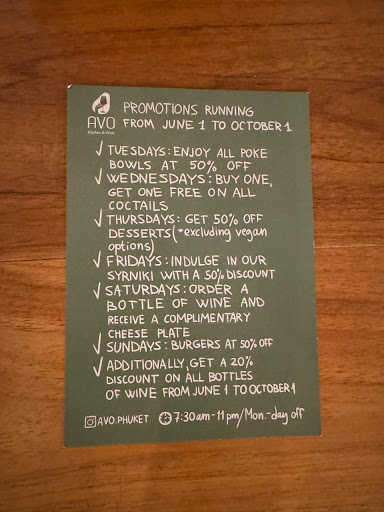 AVO
Kitchen & Wine
PROMOTIONS RUNNING
FROM JUNE 1 TO OCTOBER 1
✓ TUESDAYS: ENJOY ALL POKE
BOWLS AT 50% OFF
✓ WEDNESDAYS: BUY ONE,
GET ONE FREE ON ALL
COCTAILS
✓ THURSDAYS: GET 50% OFF
DESSERTS (*excluding vegan
options)
✓ FRIDAYS: INDULGE IN OUR
SYRNIKI WITH A 50% DISCOUNT
✓ SATURDAYS: ORDER A
BOTTLE OF WINE AND
RECEIVE A COMPLIMENTARY
CHEESE PLATE
✓ SUNDAYS: BURGERS AT 50% OFF
✓ ADDITIONALLY, GET A 20%
DISCOUNT ON ALL BOTTLES
OF WINE FROM JUNE 1 TO OCTOBER 1
AVO.PHUKET 7:30am-11pm/Mon.-day off